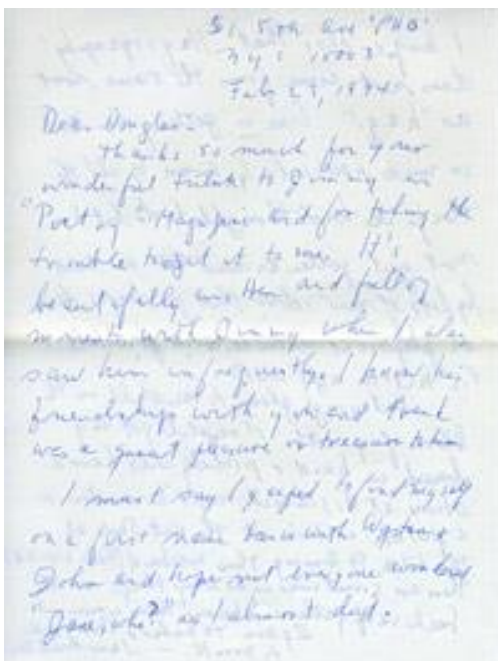 5th Ave PHD
NYC 10003
Feb 23, 1994
Dear Douglas—
Thanks so much for your
wonderful tribute to Jimmy in
"Poetry" Magazine and for taking the
trouble to get it to me. It's
beautifully written and full of
moments with Jimmy when I also
saw him infrequently. I know his
friendship with you and Frank
was a great pleasure
I must say I gasped to find myself
on a first name basis with Wystan &
John and hope not everyone wondered
"Jane, who?" as I almost did.